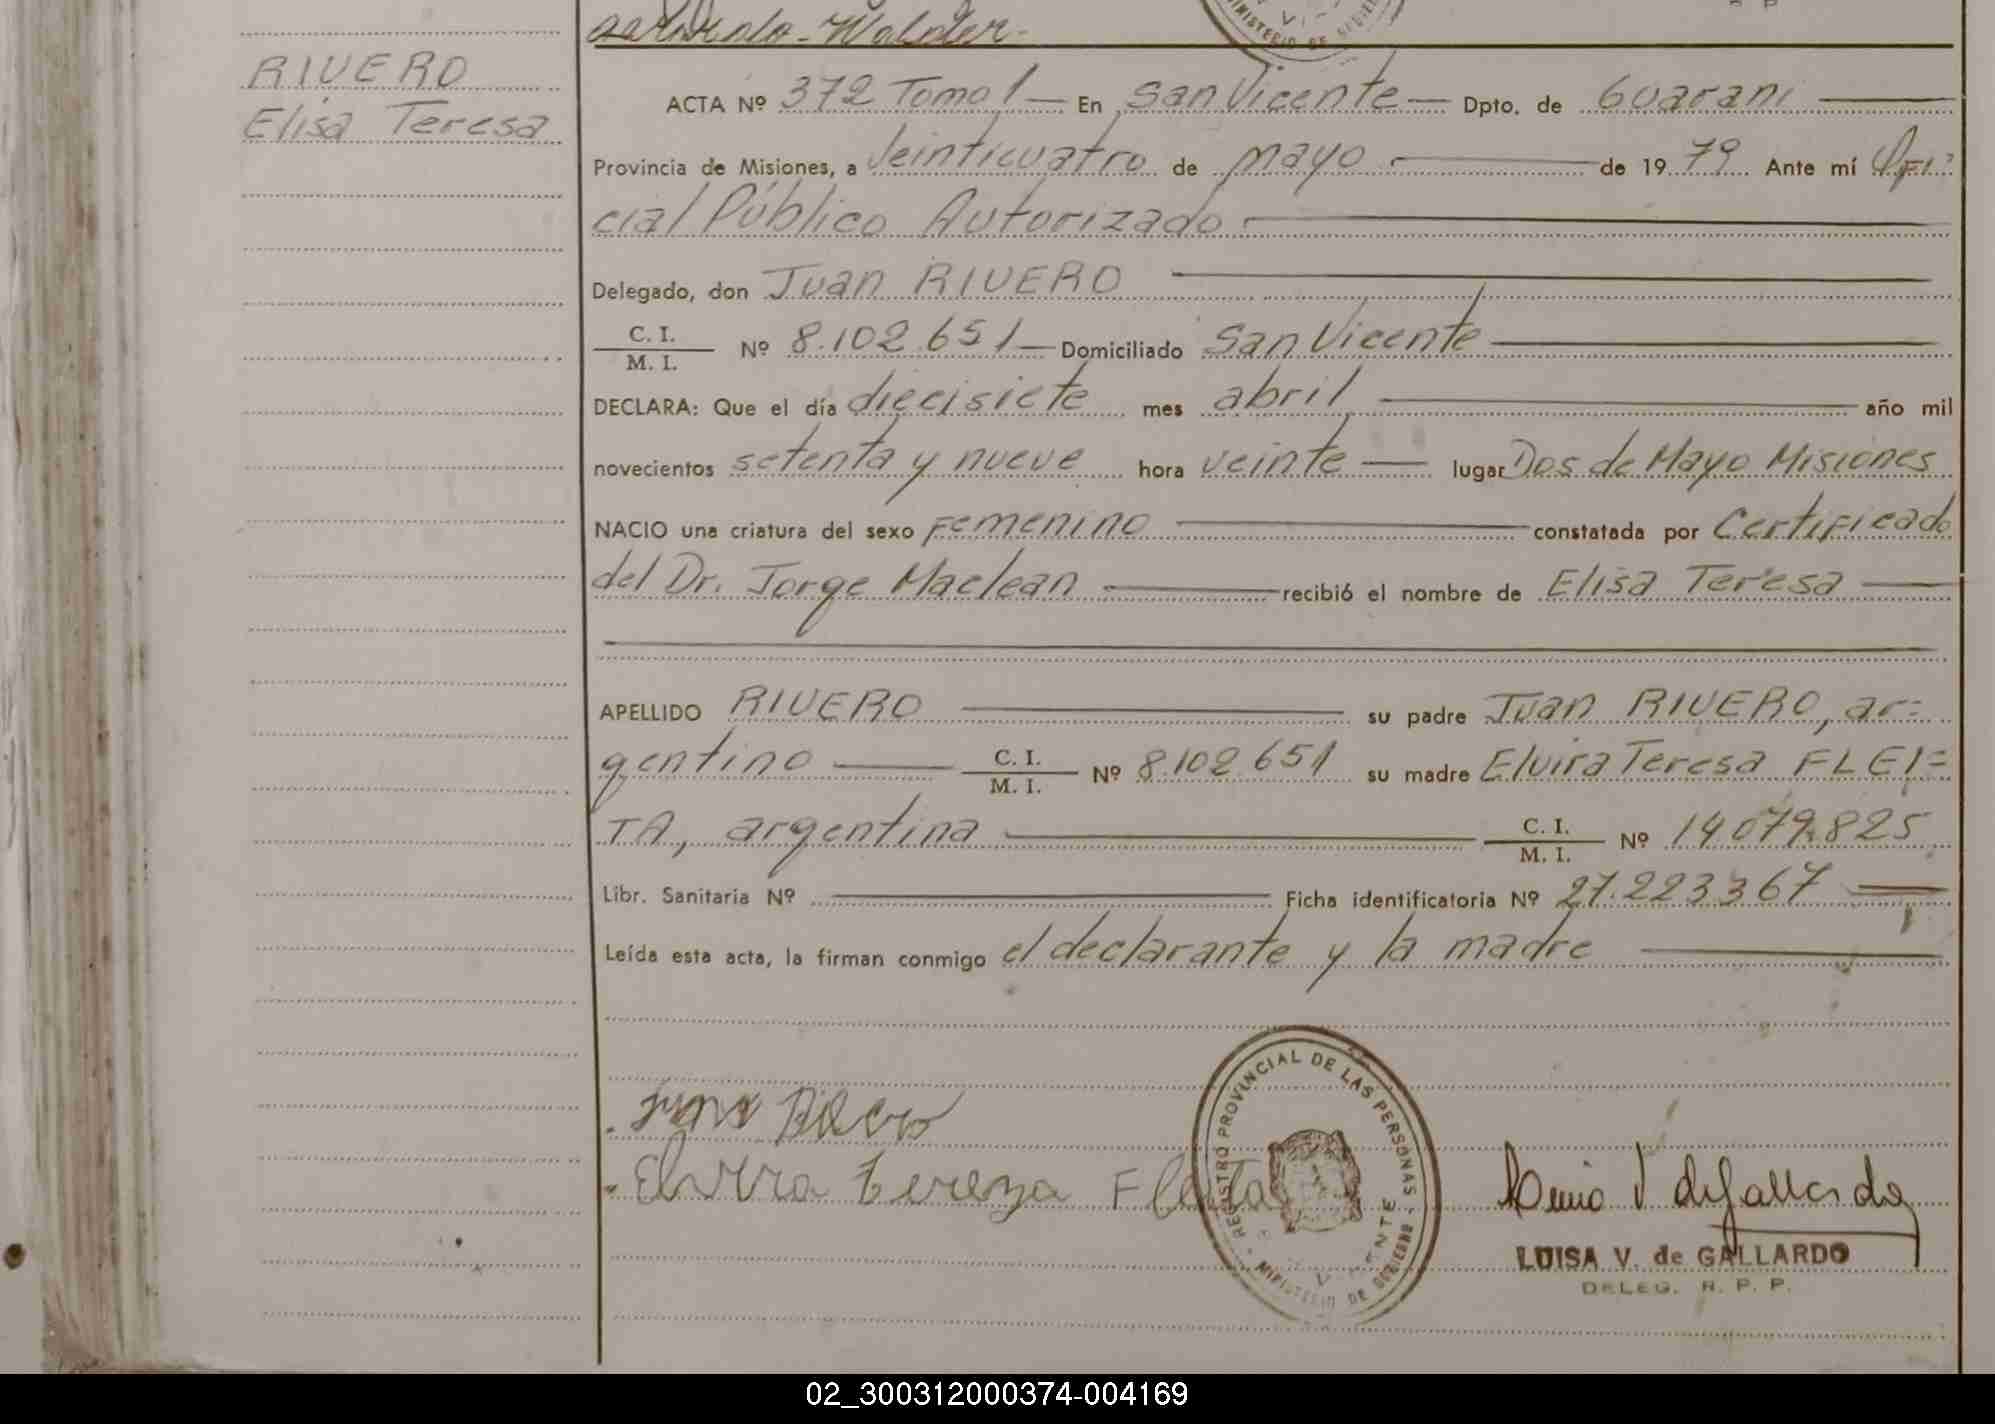 Walder-
MINISTERIO DE GOBIERNO
R. P.
RIVERO
Elisa Teresa
ACTA Nº 372 Tomo 1 — En San Vicente — Dpto. de Guarani —
Provincia de Misiones, a veinticuatro de mayo — de 1979 Ante mí Ofi=
cial Público Autorizado —
Delegado, don Juan RIVERO —
C. I.
M. I. Nº 8.102.651 — Domiciliado San Vicente —
DECLARA: Que el día diecisiete mes abril — año mil
novecientos setenta y nueve hora veinte — lugar Dos de Mayo Misiones
NACIO una criatura del sexo Femenino — constatada por Certificado
del Dr. Jorge Maclean — recibió el nombre de Elisa Teresa —
APELLIDO RIVERO — su padre Juan RIVERO, ar=
gentino — C. I. M. I. Nº 8.102.651 su madre Elvira Teresa FLEI=
TA, argentina — C. I. M. I. Nº 14.079.825
Libr. Sanitaria Nº — Ficha identificatoria Nº 27.223.367 —
Leída esta acta, la firman conmigo el declarante y la madre —
Elvira Tereza Fleita
REGISTRO PROVINCIAL DE LAS PERSONAS
MINISTERIO DE GOBIERNO
LUISA V. de GALLARDO
DELEG. R. P. P.
02_300312000374-004169